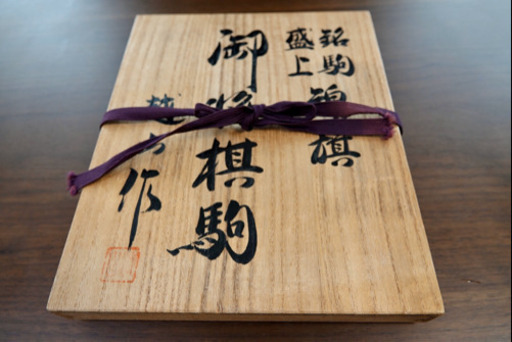 銘駒
盛上
錦旗
御将棋駒
作